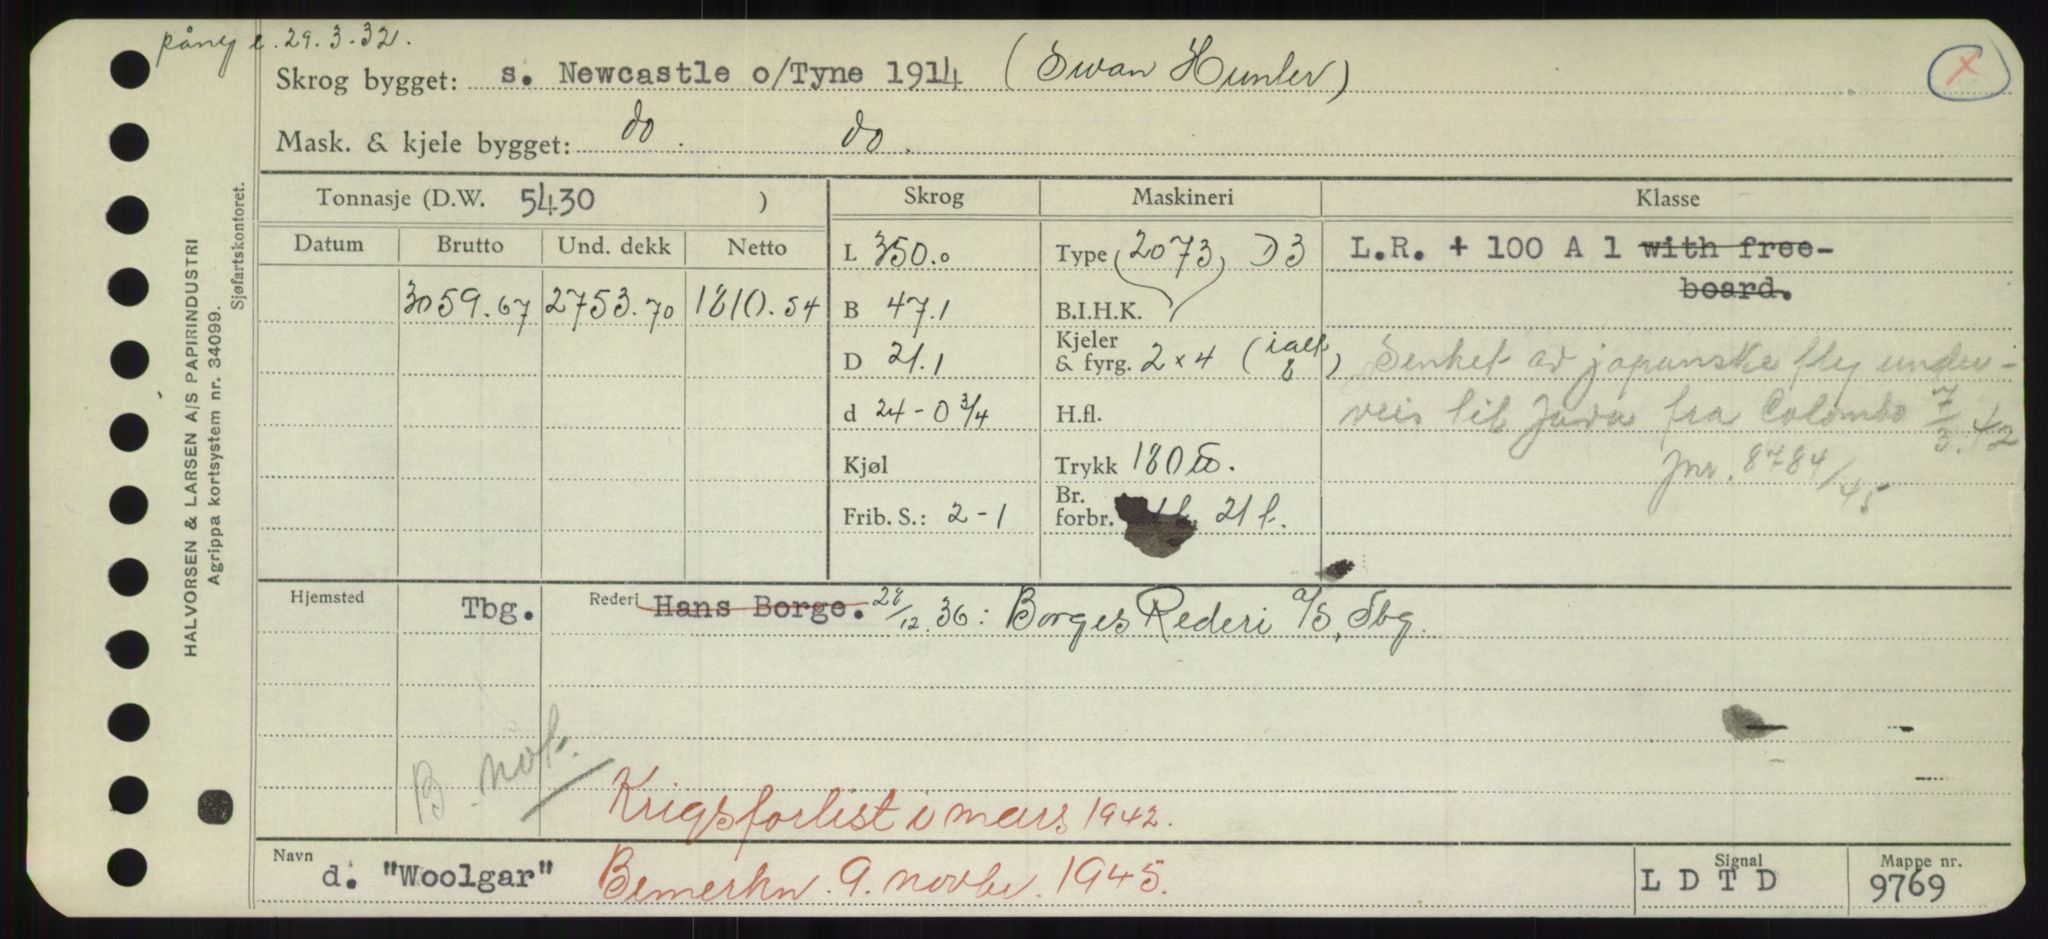 påny e. 29.3.32.
Skrog bygget: s. Newcastle o/Tyne 1914 (Swan Hunter)
Mask. & kjele bygget: do. do.
Tonnasje (D.W. 5430 )
Skrog
Maskineri
Klasse
Datum
Brutto
Und. dekk
Netto
3059.67
2753.70
1810.54
L 350.0
B 47.1
D 21.1
d 24-0 3/4
Kjøl
Frib. S.: 2-1
Type (2073) D3
B.I.H.K.
Kjeler
& fyrg. 2 x 4 (ialt 8)
H.fl.
Trykk 180 lb.
Br.
forbr. 21 t.
L.R. + 100 A 1 with free-
board.
Senket av japanske fly under-
veis til Java fra Colombo 7/3.42
Jnr. 8784/45
Hjemsted
Tbg.
Rederi Hans Borge. 28/12.36: Borges Rederi a/s, Tbg.
B. not.
Krigsforlist i mars 1942.
Navn
d. "Woolgar"
Bemerkn. 9. novbr. 1945.
Signal
L D T D
Mappe nr.
9769
HALVORSEN & LARSEN A/S PAPIRINDUSTRI
Agrippa kortsystem nr. 34099.
Sjøfartskontoret.
X